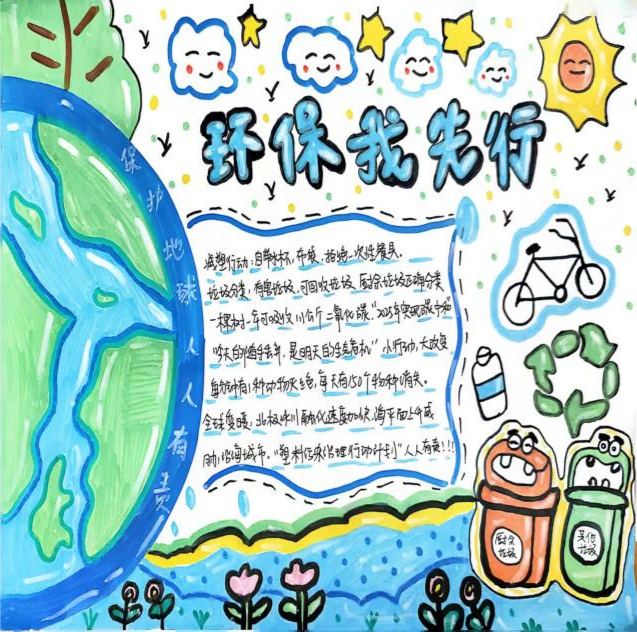 环保我先行
保护地球人人有责
减塑行动:自带水杯、布袋,拒绝一次性餐具。
垃圾分类:有害垃圾、可回收垃圾、厨余垃圾正确分类
一棵树一年可吸收18公斤二氧化碳."2025年实现碳中和"
"今天的随手丢弃,是明天的生态危机"小行动,大改变
每小时有1种动物灭绝,每天有150个物种消失。
全球变暖,北极冰川融化速度加快,海平面上升威
胁沿海城市."塑料污染治理行动计划"人人有责!!!
厨余
垃圾
其他
垃圾